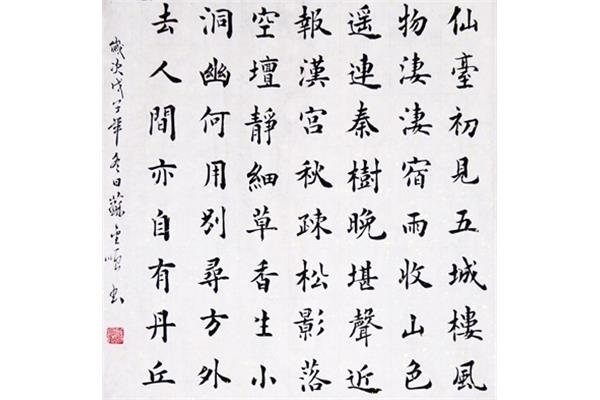 仙臺初見五城樓風
物淒淒宿雨收山色
遥連秦樹晚堪聲近
報漢宮秋疎松影落
空壇靜細草香生小
洞幽何用別尋方外
去人間亦自有丹丘
歲次戊子年冬日蘇金順书